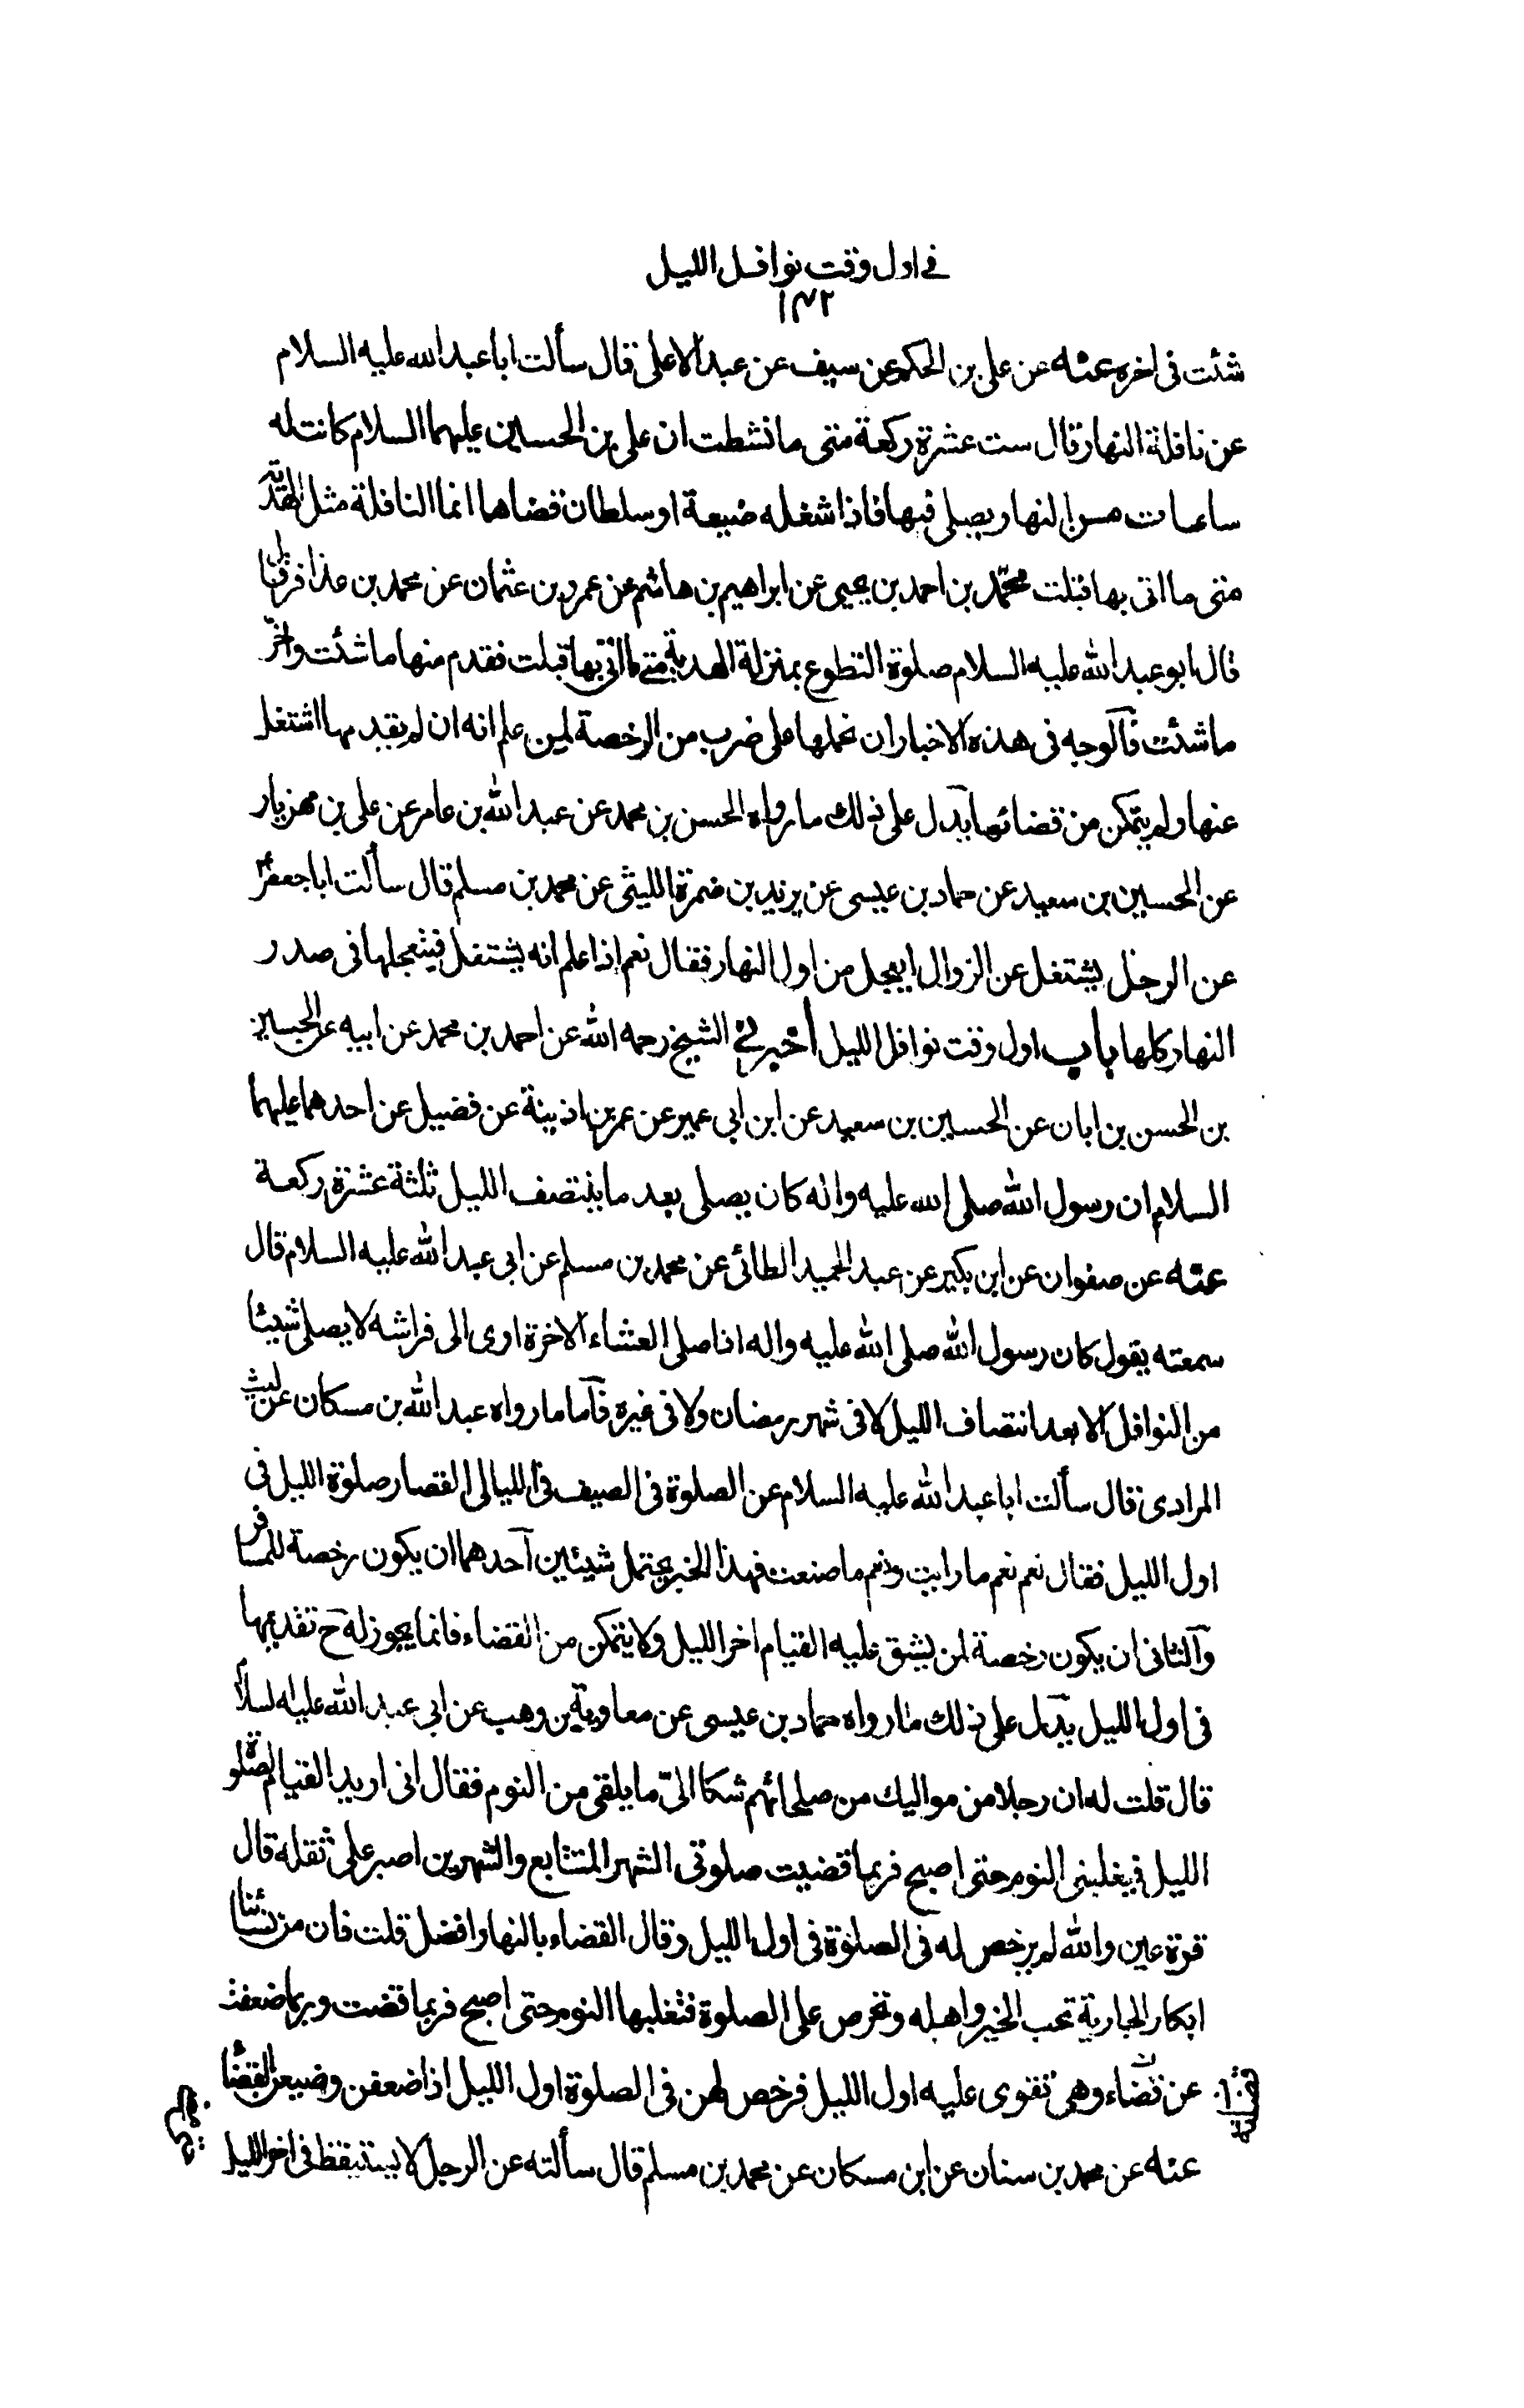 في اول وقت نوافل الليل
١٤٢
شئت فى اخره عنه عن على بن الحكم عن سيف عن عبد الاعلى قال سألت ابا عبد الله عليه السلام
عن نافلة النهار قال ست عشرة ركعة متى ما نشطت ان على بن الحسين عليهما السلام كانت له
ساعات من النهار يصلى فيها فاذا شغله ضيعة او سلطان قضاها انما النافلة مثل الهدية
متى ما اتى بها قبلت محمّد بن احمد بن يحيى عن ابراهيم بن هاشم عن عمرو بن عثمان عن محمد بن عذافر قال
قال ابو عبد الله عليه السلام صلوة التطوع بمنزلة الهدية متى ما اتى بها قبلت فقدم منها ما شئت واخّر
ما شئت فآلوجه فى هذه الاخبار ان نحملها على ضرب من الرخصة لمن علم انه ان لم يقدمها اشتغل
عنها ولم يتمكن من قضائها يدل على ذلك ما رواه الحسن بن محمد عن عبد الله بن عامر عن على بن مهزيار
عن الحسين بن سعيد عن حماد بن عيسى عن يزيد بن ضمرة الليثى عن محمد بن مسلم قال سألت ابا جعفر ع
عن الرجل يشتغل عن الزوال ايعجل من اول النهار فقال نعم اذا علم انه يشتغل فيتعجلها فى صدر
النهار كلها باب اول وقت نوافل الليل أخبرني الشيخ رحمه الله عن احمد بن محمد عن ابيه عن الحسين
بن الحسن بن ابان عن الحسين بن سعيد عن ابن ابى عمير عن عمر بن اذينة عن فضيل عن احدهما عليهما
السلام ان رسول الله صلى الله عليه واله كان يصلى بعد ما ينتصف الليل ثلثة عشرة ركعة
عنه عن صفوان عن ابن بكير عن عبد الحميد الطائى عن محمد بن مسلم عن ابى عبد الله عليه السلام قال
سمعته يقول كان رسول الله صلى الله عليه واله اذا صلى العشاء الاخرة اوى الى فراشه لا يصلى شيئا
من النوافل الا بعد انتصاف الليل لا فى شهر رمضان ولا فى غيره فآما ما رواه عبد الله بن مسكان عن ليث
المرادى قال سألت ابا عبد الله عليه السلام عن الصلوة فى الصيف فى الليالى القصار صلوة الليل فى
اول الليل فقال نعم نعم ما رايت ونعم ما صنعت فهذا الخبر يحتمل شيئين آحدهما ان يكون رخصة للمسافر
وآلثانى ان يكون رخصة لمن يشق عليه القيام اخر الليل ولا يتمكن من القضاء فانما يجوز له ح تقديمها
فى اول الليل يدل على ذلك ما رواه حماد بن عيسى عن معاوية بن وهب عن ابى عبد الله عليه السلام
قال قلت له ان رجلا من مواليك من صلحائهم شكا الىّ ما يلقى من النوم فقال انى اريد القيام لصلوة
الليل فيغلبنى النوم حتى اصبح فربما قضيت صلوتى الشهر المتتابع والشهرين اصبر على ثقله قال
قرة عين والله لم يرخص له فى الصلوة فى اول الليل وقال القضاء بالنهار افضل قلت فان من نسائنا
ابكار الجارية تحب الخير واهله وتحرص على الصلوة فتغلبها النوم حتى اصبح فربما قضت وربما ضعفت
عن قضاء وهى تقوى عليه اول الليل فرخص لهن فى الصلوة اول الليل اذا ضعفن وضيعن القضاء
عنه عن محمد بن سنان عن ابن مسكان عن محمد بن مسلم قال سألته عن الرجل لا يستيقظ فى اخر الليل